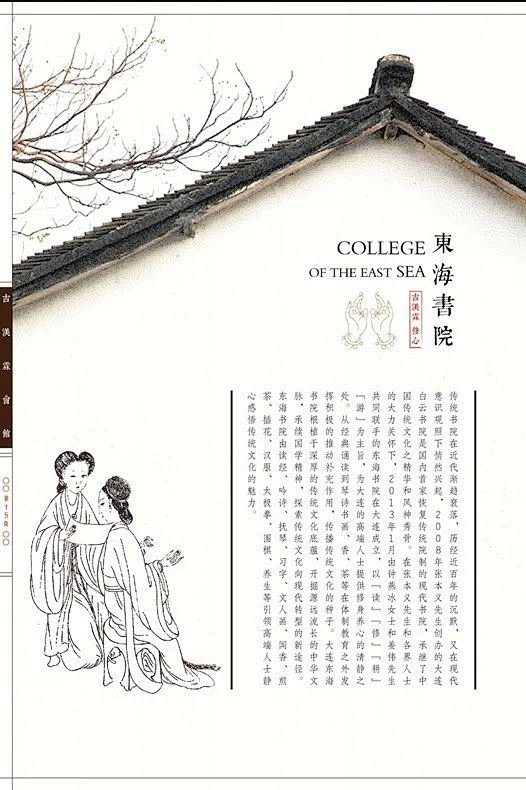 東海書院
COLLEGE
OF THE EAST SEA
古漢霖 修心
传统书院在近代渐趋衰落，历经近百年的沉默，又在现代
意识观照下悄然兴起，2008年张本义先生创办的大连
白云书院是国内首家恢复传统院制的现代书院，承继了中
国传统文化之精华和风神秀骨。在张本义先生和各界人士
的大力关怀下，2013年1月由钟燕冰女士和姜伟先生
共同联手的东海书院在大连成立，以「读」「修」「耕」
「游」为主旨，为大连的高端人士提供修身养心的清静之
处。从经典诵读到琴诗书画、香、茶等在体制教育之外发
挥积极的推动补充作用，传播传统文化的种子。大连东海
书院根植于深厚的传统文化底蕴，开掘源远流长的中华文
脉，承续国学精神，探索传统文化向现代转型的新途径。
东海书院由读经、吟诗、抚琴、习字、文人画、闻香、煎
茶、插花、汉服、太极拳、围棋、养生等引领高端人士静
心感悟传统文化的魅力。
古漢霖會館
〇〇第十五頁〇〇